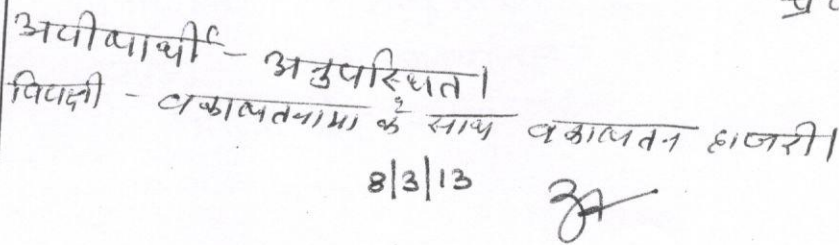 अपीलार्थी - अनुपस्थित।
विपक्षी - वकालतनामा के साथ वकालतन हाजरी।
8/3/13